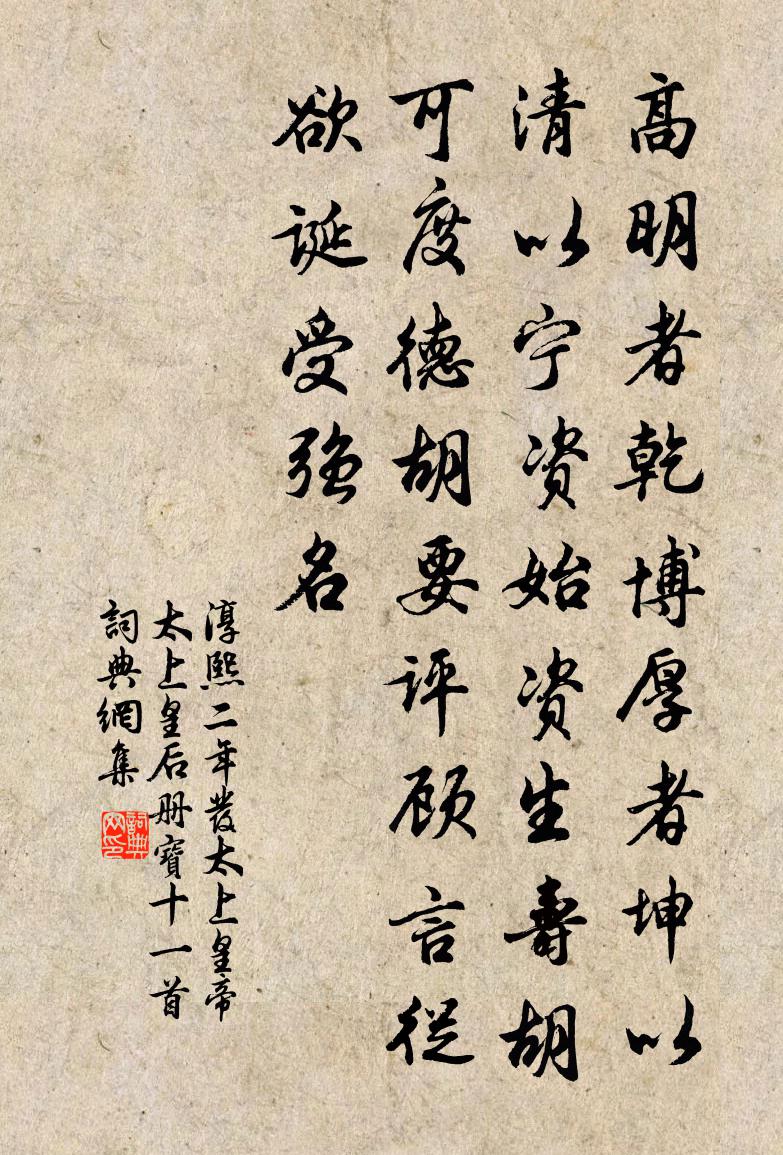 高明者乾博厚者坤以
清以宁资始资生壽胡
可度德胡要评顾言從
欲诞受强名
淳熙二年發太上皇帝
太上皇后册寶十一首
詞典網集
詞典网印